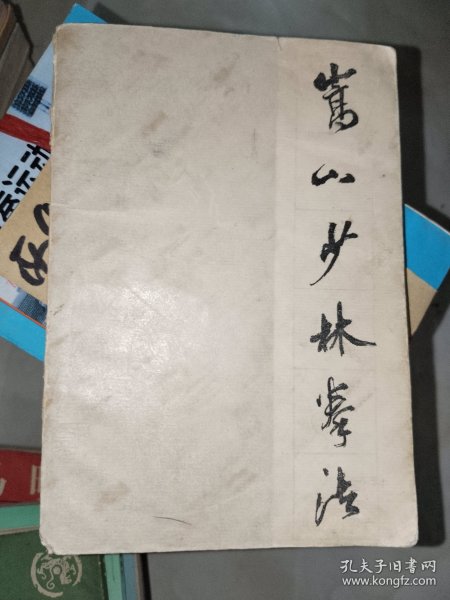 嵩山少林拳法
孔夫子旧书网
www.kongfz.com